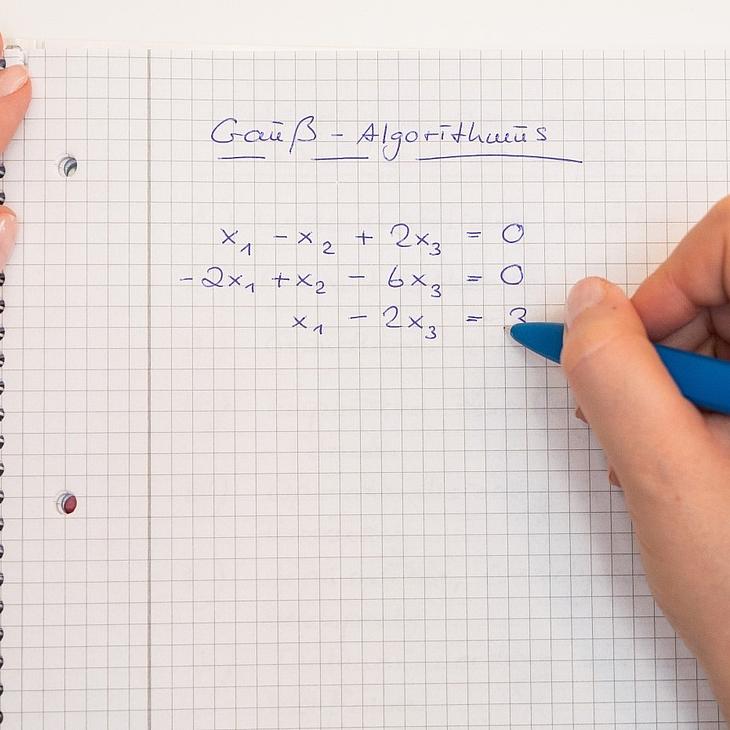 Gauß - Algorithmus
x₁ - x₂ + 2x₃ = 0
-2x₁ + x₂ - 6x₃ = 0
x₁ - 2x₃ =